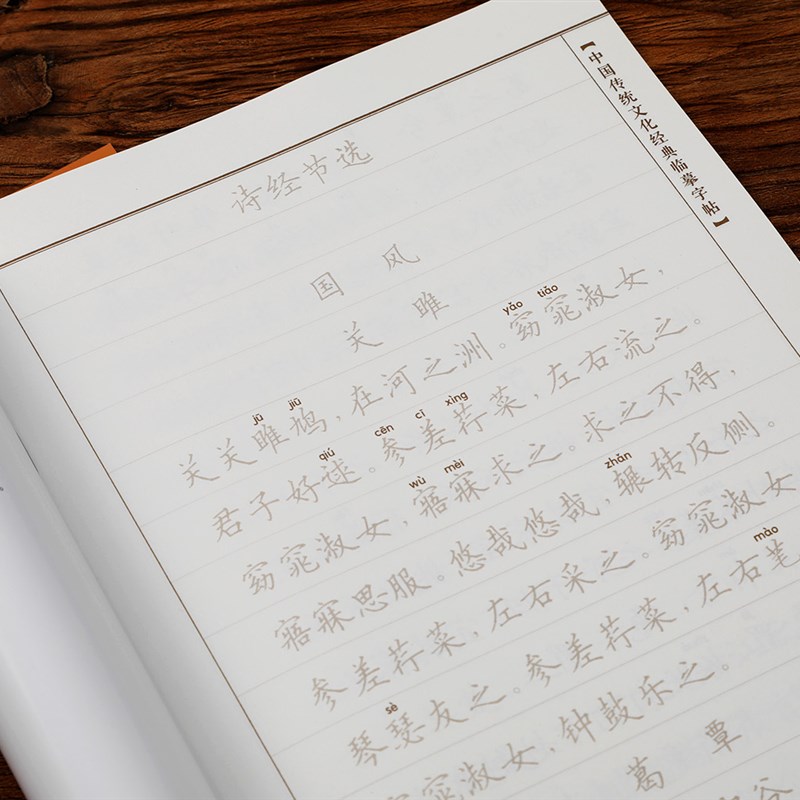 【中国传统文化经典临摹字帖】
诗经节选
国风
关雎
jū jiū yǎo tiǎo
关关雎鸠,在河之洲。窈窕淑女,
qiú cēn cī xìng
君子好逑。参差荇菜,左右流之。
wù mèi
窈窕淑女,寤寐求之。求之不得,
zhǎn
寤寐思服。悠哉悠哉,辗转反侧。
参差荇菜,左右采之。窈窕淑女
sè mào
琴瑟友之。参差荇菜,左右芼
窈窕淑女,钟鼓乐之。
葛覃
谷